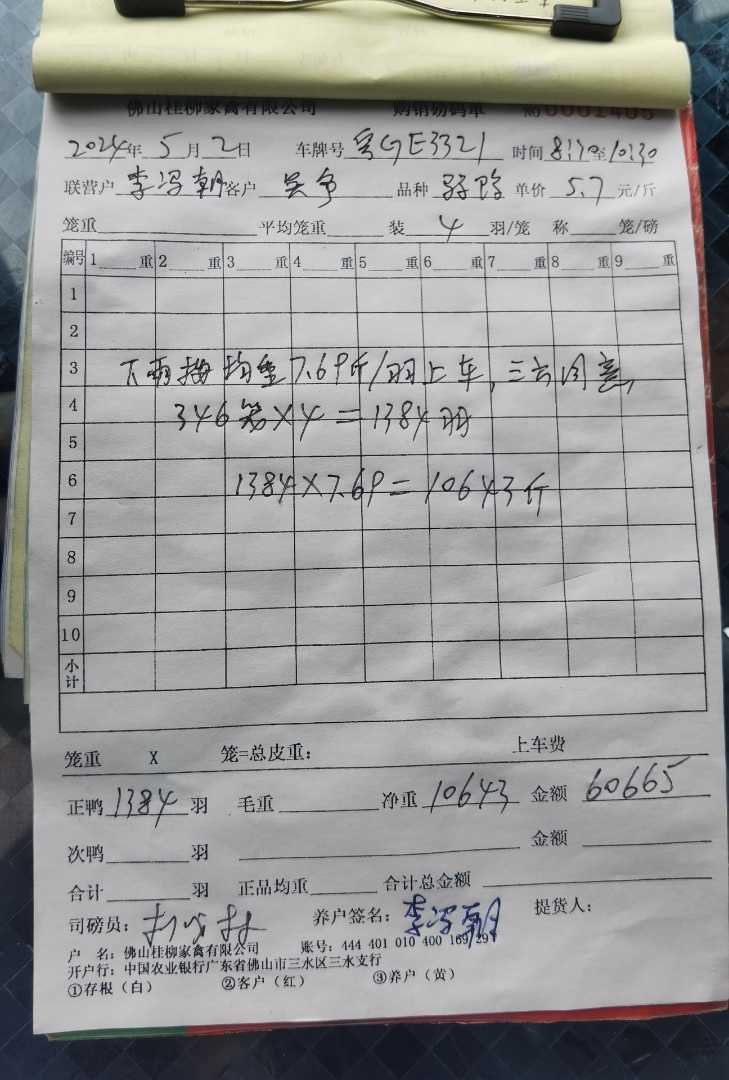 佛山桂柳家禽有限公司 购销磅码单 № 0001405
2024年 5 月 2 日 车牌号 粤GE3321 时间 8:30至10:30
联营户 李冯朝 客户 吴争 品种 单价 5.7 元/斤
笼重 平均笼重 装 4 羽/笼 称 笼/磅
编号 1 重 2 重 3 重 4 重 5 重 6 重 7 重 8 重 9 重
1
2
3 下雨 均重7.69斤/羽上车, 三方同意,
4 346笼×4=1384羽
5
6 1384×7.69=10643斤
7
8
9
10
小计
笼重 X 笼=总皮重: 上车费
正鸭 1384 羽 毛重 净重 10643 金额 60665
次鸭 羽 金额
合计 羽 正品均重 合计总金额
司磅员: 养户签名: 李冯朝 提货人:
户 名: 佛山桂柳家禽有限公司 账号: 444 401 010 400 169 297
开户行: 中国农业银行广东省佛山市三水区三水支行
①存根（白） ②客户（红） ③养户（黄）